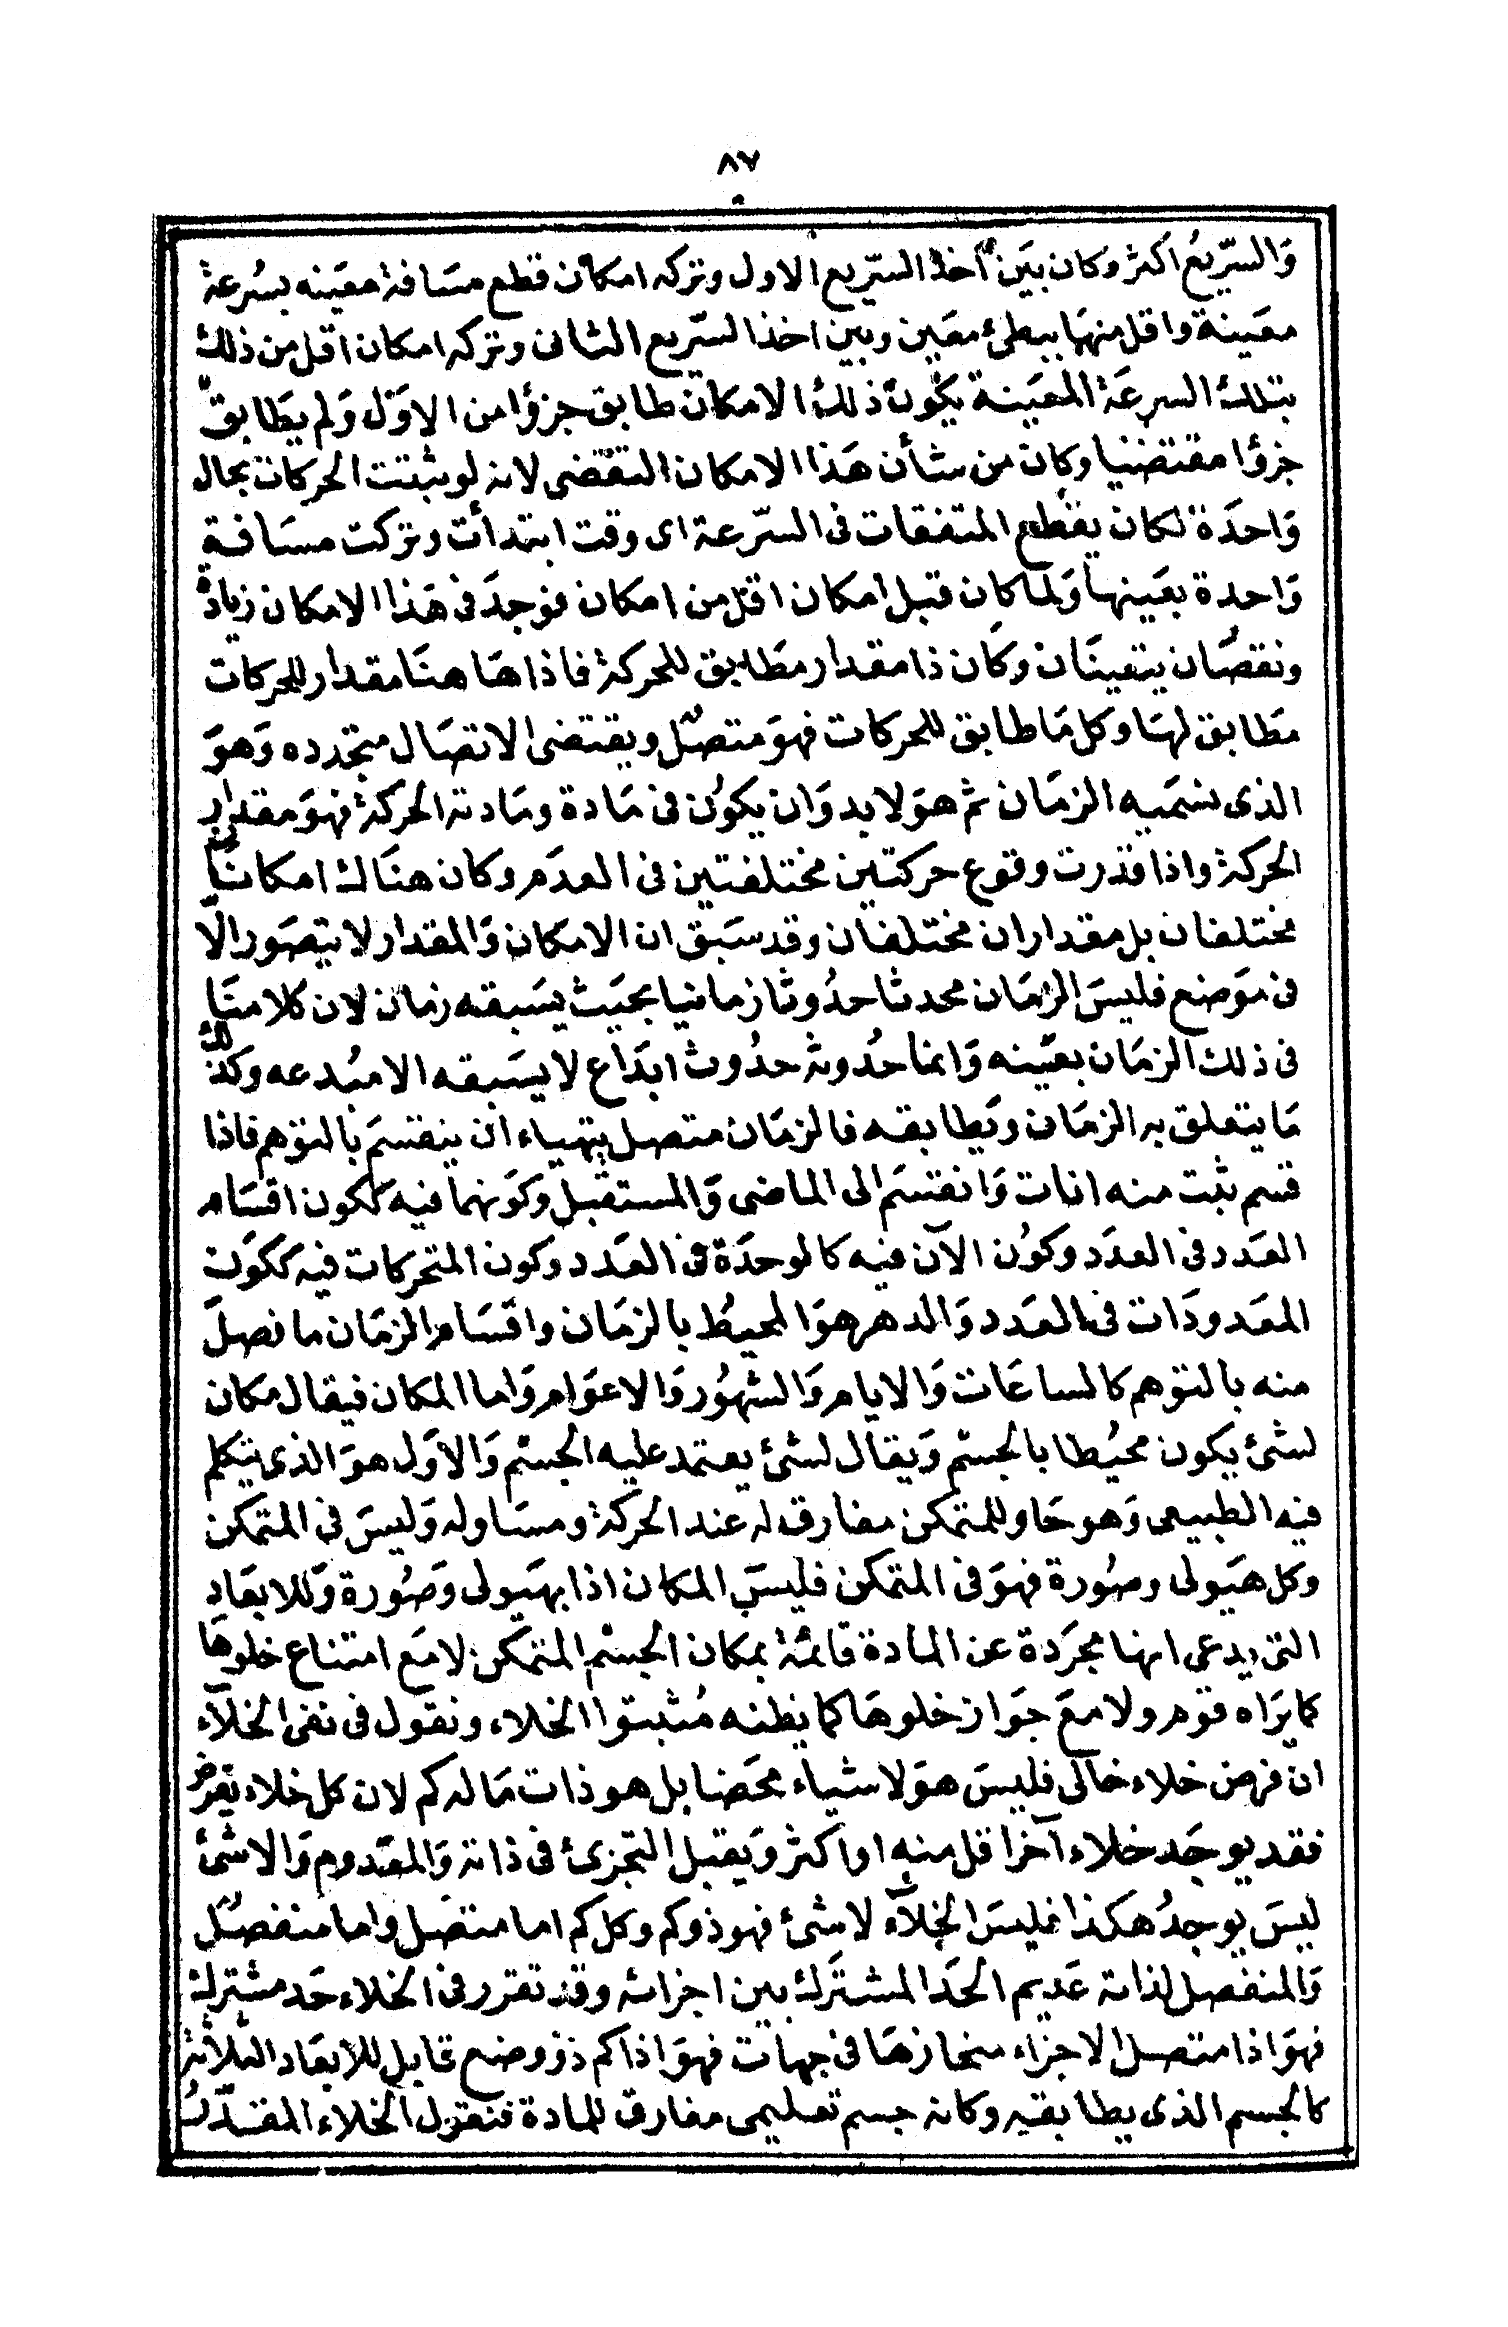 ٨٧
وَالسّرِيعُ اكثر وكان بَين اخذ السّرِيع الاول وتركه امكان قطع مسَافة معَينه بسُرعة
معَينة واقل منهَا ببطئ معَين وبين اخذ السّريع الثانى وتركه امكان اقل من ذلك
بتلك السرعَة المعَينة يكون ذلك الامكان طابق جزؤا من الاوّل وَلم يطَابق
جزؤا مقتضيا وكان من شأن هَذا الامكان التقضى لانه لو ثبتت الحركات بحال
وَاحدَة لكان يقطع المتفقات فى السّرعة اى وقت ابتدأت وتركت مسَافة
وَاحدة بعَينها وَلما كان قبل امكان اقلّ من امكان فوجدَ فى هَذا الامكان زيادة
ونقصَان يتعينَان وكَان ذا مقدار مطَابق للحركة فاذا هَا هنَا مقدار للحركات
مطَابق لهَا وكل مَا طابق للحركات فهوَ متصلٌ ويقتضى الاتصَال متجدده وَهوَ
الذى نسَميه الزمَان ثم هوَ لا بد وَان يكوُن فى مَادة ومَادته الحركة فهوَ مقدار
الحركة واذا قدرت وقوع حركتين مختلفتين فى العدَم وكان هنَاك امكانَان
مختلفان بل مقداران مختلفان وقد سَبق ان الامكان وَالمقدار لا يتصَور الّا
فى موَضع فليسَ الزمَان محدثا حدُوثا زمانيا بحَيث يسَبقه زمان لان كلامنَا
فى ذلك الزمَان بعَينه وَانما حُدوثه حدُوث ابدَاع لا يسَبقه الا مبُدعه وكذلك
مَا يتعلق به الزمَان ويَطابقه فالزمَان متصل يتهياء ان ينقسَم بالتوَهم فاذا
قسم ثبت منه انات وَانقسَم الى الماضى وَالمستقبل وكوَنهما فيه ككون اقسَام
العَدد فى العدَد وكوُن الآن فيه كالوحدَة فى العَدد وكون المتحركات فيه ككوَن
المعَدودَات فى العَدد وَالدهر هوَ المحيطُ بالزمَان واقسَام الزمَان ما فصل
منه بالتوَهم كالساعَات وَالايام وَالشهُور وَالاعوَام وَاما المكان فيقال مكان
لشئ يكون محيُطا بالجسْم وَيقال لشئ يعتمد عليه الجسْم وَالاوَل هوَ الذى يتكلم
فيه الطبيعى وَهو حَاو للمتمكن مفارق له عند الحركة ومسَاو له وَليسَ فى المتمكن
وكل هيَولى وصُورة فهوَ فى المتمكن فليسَ المكان اذا بهيَولى وَصُورة وَلا الابعَاد
التى يدعى انها مجرَدة عن المادة قائمَة بمكان الجسْم المتمكن لا معَ امتناع خلوهَا
كما يرَاه قوم ولا معَ جوَاز خلوهَا كما يظنه مُثبتوا الخلاء ونقول فى نفى الخلآء
ان فرض خلاء خالى فليسَ هوَ لا شياء محَضا بل هو ذات مَا له كم لان كل خلاء يفرض
فقد يوجَد خلاء آخر اقل منه او اكثر وَيقبل التجزئ فى ذاته وَالمعَدوم وَالاشئ
ليسَ يوجدُ هكذا فليسَ الخلآء لا شئ فهو ذو كم وكل كم اما متصل واما منفصلٌ
وَالمنفصل لذاته عَديم الحَد المشترَك بين اجزائه وقد تقرر فى الخلاء حَد مشترك
فهوَ اذا متصل الاجزاء منحازهَا فى جهات فهوَ اذا كم ذو وضع قابل للابعَاد الثلاثة
كالجسم الذى يطابقه وكانه جسم تعليمى مفارق للمادة فنقول الخلاء المقدّر